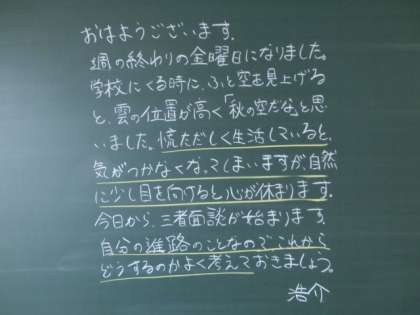 おはようございます。
週の終わりの金曜日になりました。
学校にくる時に、ふと空を見上げる
と、雲の位置が高く「秋の空だな」と思
いました。慌ただしく生活していると、
気がつかなくなってしまいますが、自然
に少し目を向けると心が休まります。
今日から、三者面談が始まります。
自分の進路のことなので、これから
どうするのかよく考えておきましょう。
浩介